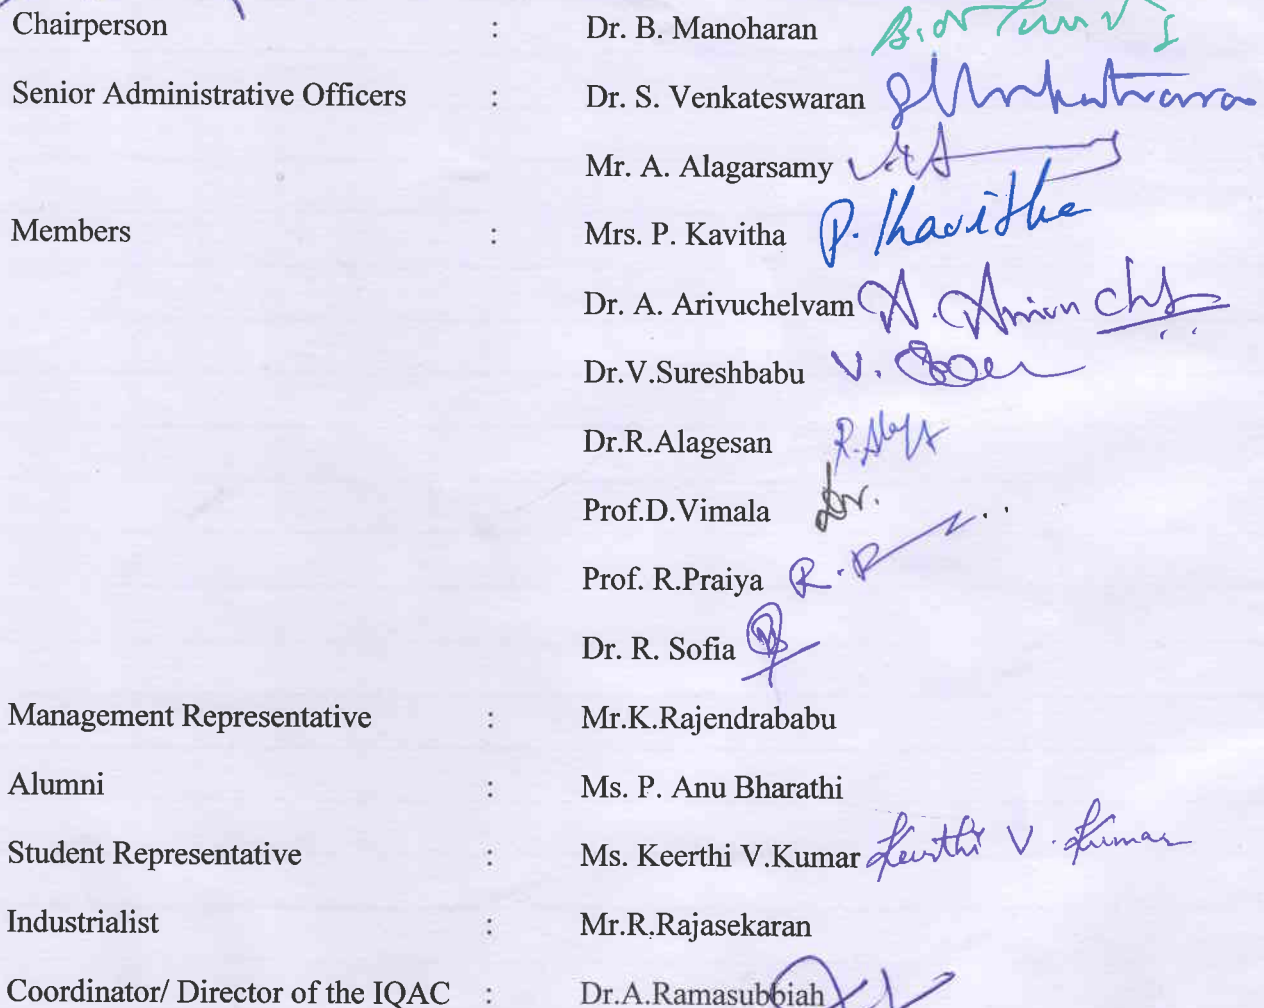 Chairperson : Dr. B. Manoharan
Senior Administrative Officers : Dr. S. Venkateswaran
Mr. A. Alagarsamy
Members : Mrs. P. Kavitha P. Kavitha
Dr. A. Arivuchelvam
Dr.V.Sureshbabu V.
Dr.R.Alagesan
Prof.D.Vimala
Prof. R.Praiya
Dr. R. Sofia
Management Representative : Mr.K.Rajendrababu
Alumni : Ms. P. Anu Bharathi
Student Representative : Ms. Keerthi V.Kumar Keerthi V. Kumar
Industrialist : Mr.R.Rajasekaran
Coordinator/ Director of the IQAC : Dr.A.Ramasubbiah